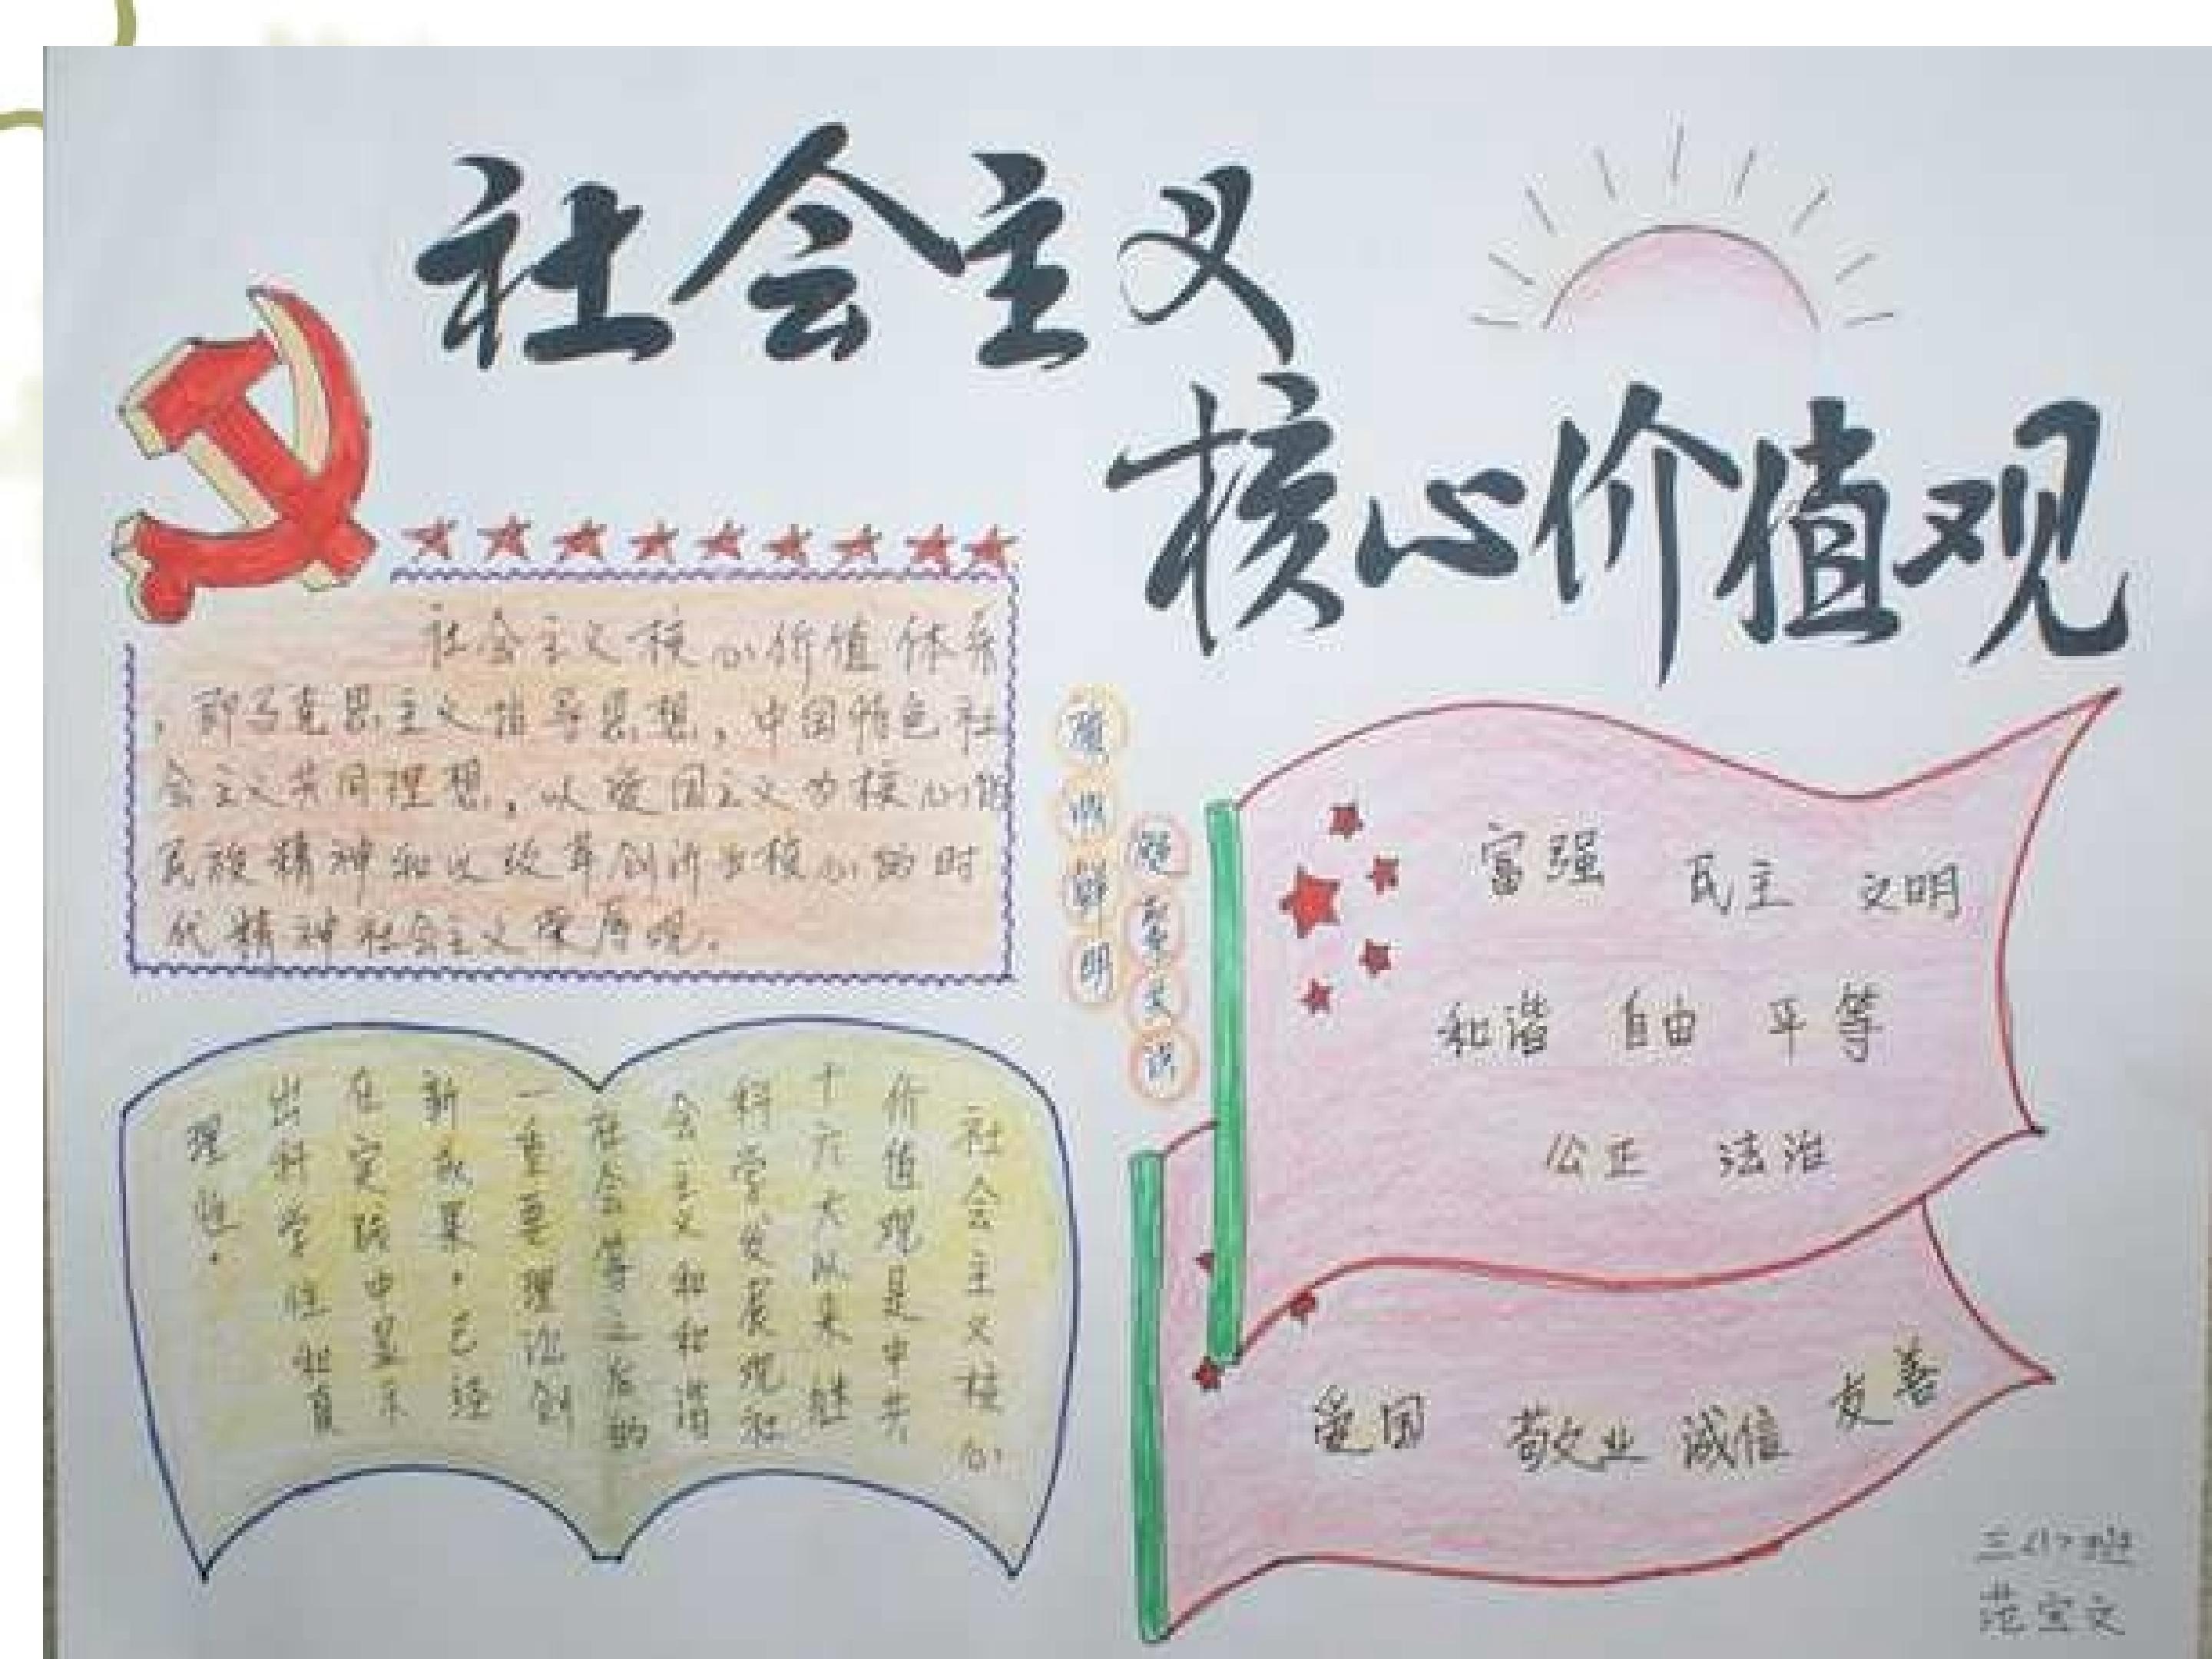 社会主义
核心价值观
社会主义核心价值体系
，即马克思主义指导思想，中国特色社
会主义共同理想，以爱国主义为核心的
民族精神和以改革创新为核心的时
代精神社会主义荣辱观。
旗帜鲜明
凝聚共识
富强 民主 文明
和谐 自由 平等
公正 法治
爱国 敬业 诚信 友善
社会主义核心
价值观是中共
十六大以来继
科学发展观社
会主义和和谐
社会等之后的
一重要理论创
新成果．已经
在实践中显示
出科学性和真
理性．
三〈1〉班
范宝文